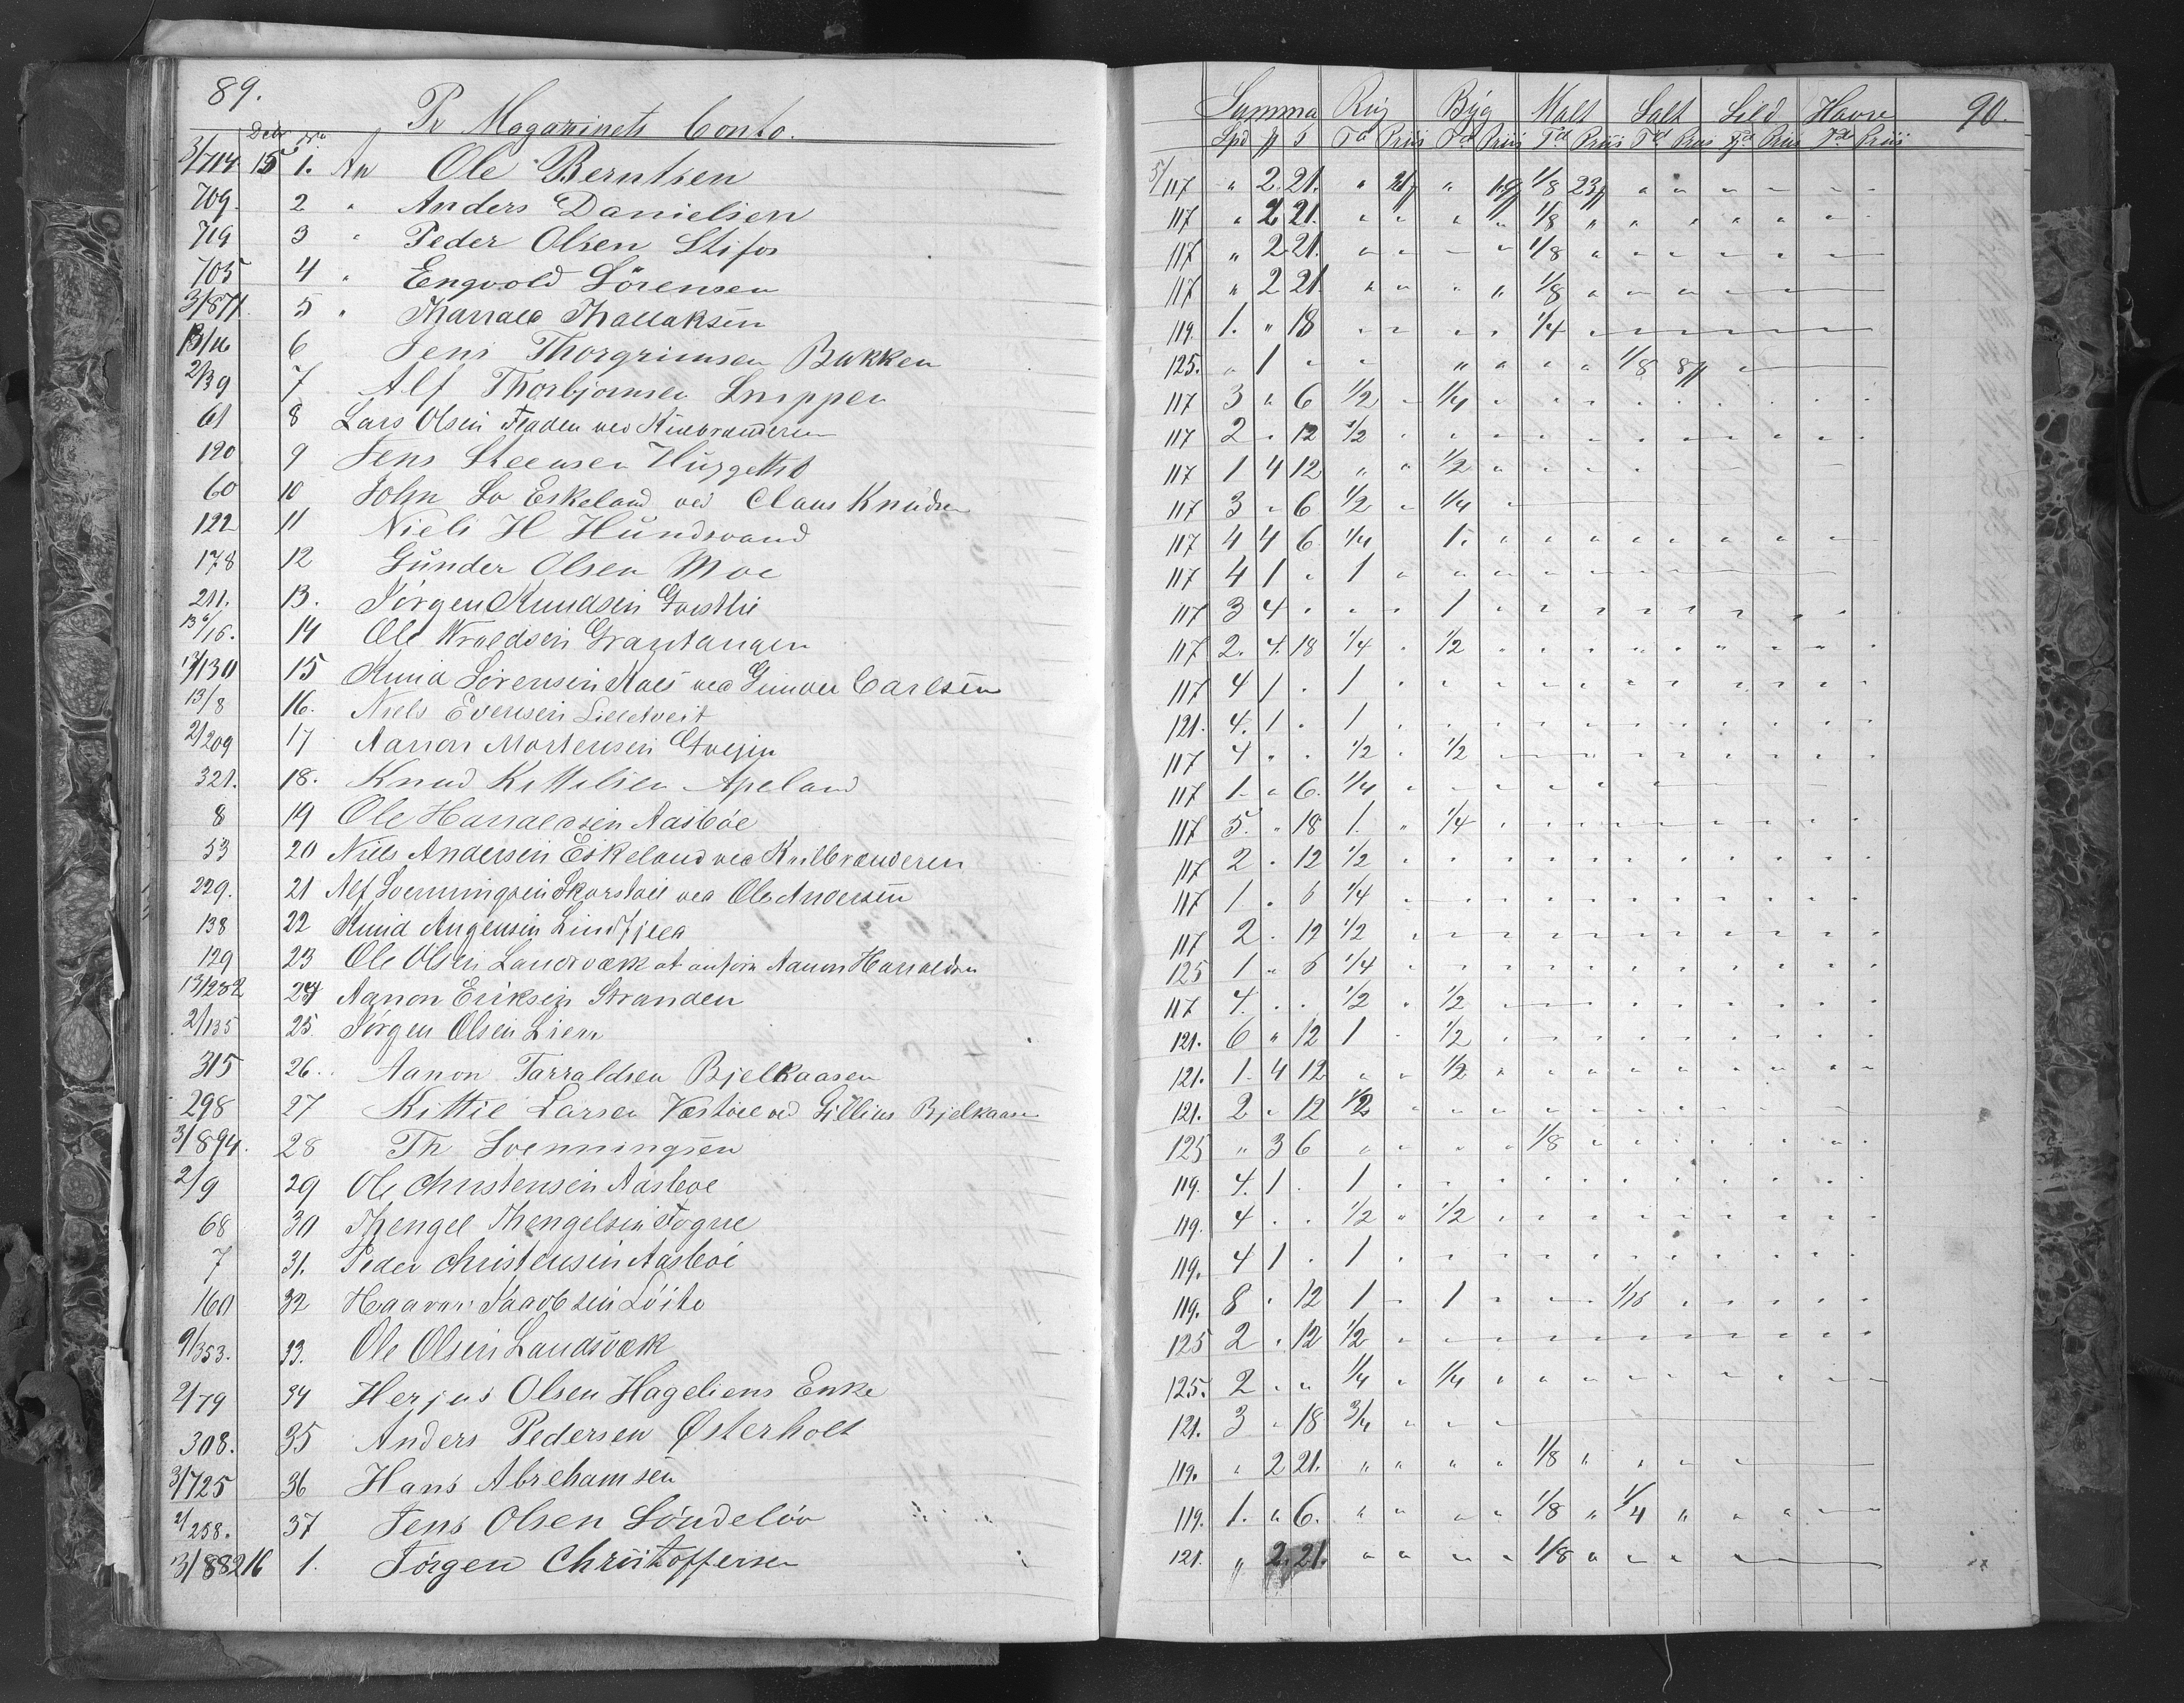 89.
Pr Magazinets Conto.
Decbr No
3/714 15 1. An Ole Berntsen
709. 2 " Anders Danielsen
719 3 " Peder Olsen Stifos
705 4 " Engvold Sörensen
3/871. 5 " Tharrald Thallaksen
13/16 6 Jens Thorgrimsen Bakken
2/39 7 Alf Thorbjornsen Snippen
61 8 Lars Olsen ved
120 9 Jens Steensen
60 10 John So Eskeland ved Claus Knudsen
122 11 Niels H Hundsvand
178 12 Gunder Olsen Moe
211. 13. Jörgen Knudsen
13/16. 14 Ole Wroldsen Grantangen
13/130 15 Knud Sörensen ved Gunder Carlsen
13/8 16. Niels Evensen Lilletveit
2/209 17 Aanon Mortensen
321. 18. Knud Kittilsen Apeland
8 19 Ole Harraldsen Aasböe
53 20 Niels Andersen Eskeland ved
229. 21 Alf Svenningsen ved Ole Andersen
138 22 Knud Lindfjeld
129 23 Ole Olsen Landsværk at anföre Aanon Harraldsen
13/232 24 Aanon Eriksen Stranden
2/135 25. Jörgen Olsen Lien
315 26. Aanon Tarraldsen Bjelkaasen
298 27 Kittil Larsen ved Gullius Bjelkaasen
3/894. 28 Th Svenningsen
2/9 29 Ole Christensen Aasböe
68 30 Thengel Thengelsen Fogne
7 31. Peder Christensen Aasböe
160 32 Haavor Jacobsen Löite
9/353. 33. Ole Olsen Landsværk
2/79 34 Herjus Olsen Hageliens Enke
308. 35 Anders Pedersen Østerholt
3/725 36 Hans Abrehamsen
2/258. 37 Jens Olsen Söndelöv
3/882 16 1. Jörgen Christoffersen
Summa Rug Byg Malt Salt Sild Havre 90.
Spd Td Priis Td Priis Td Priis Td Priis Td Priis Td Priis
5/117 " 2. 21. " " 1/8 " " " " " "
117 " 2 21. " " " " 1/8 " " " " " " "
117 " 2 21. " " " " 1/8 " " " " " "
117 " 2 21. " " " " 1/8 " " "
119. 1. " 18 " " " " 1/4 "
125. " 1 " " " " " " 1/8 "
117 3 " 6 1/2 " 1/4 " " " " " " " " "
117 2 " 12 1/2 " " " " " " " " " " "
117 1 4 12 " " 1/2 " " " " " " "
117 3 " 6 1/2 " 1/4 "
117 4 4 6 1/4 1. " " " " " " " "
117 4 1 " 1 " " " " " "
117 3 4 " " " 1 " " " " " " " " "
117 2. 4. 18 1/4 " 1/2 " " " " " " " " "
117 4 1 " 1 " " " " " " " " " " "
121. 4. 1 " 1 " " " " " " " " " " "
117 4 " " 1/2 " 1/2 " " " " " " " "
117 1. " 6. 1/4 " " " " " " "
117 5. " 18 1. " 1/4 " " " " " " " " "
117 2 " 12 1/2 " " " " " " " " " " "
117 1 " 6 1/4 " " " " " " " " " " "
117 2 " 12 1/2 " " " " " " " " " " "
125 1 " 6 1/4 " " " " " " " " " " "
117 4. " " 1/2 " 1/2 " " " " " " " " "
121. 6 " 12 1 " 1/2 " " " " " " " " "
121. 1. 4 12 " " 1/2 " " " " " " " " "
121. 2 " 12 1/2 " " " " " " " " " " "
125 " 3 6 " " " " 1/8 " " " " " " "
119. 4. 1 " 1 " " " " " " " " " " "
119. 4 " " 1/2 " 1/2 " " " " " " " " "
119. 4 1 " 1 " " " " " " " " " " "
119. 8 " 12 1 " 1 " " " 1/16 " " " " "
125 2 " 12 1/2 " " " " " " " " " " "
125. 2 " " 1/4 " 1/4 " " " " " " " " "
121. 3 " 18 3/4 " " "
119. " 2 21. " " " " 1/8 " " " "
119. 1. " 6. " " " " 1/8 " 1/4 " " " "
121. " 2. 21. " " " " 1/8 " " " "